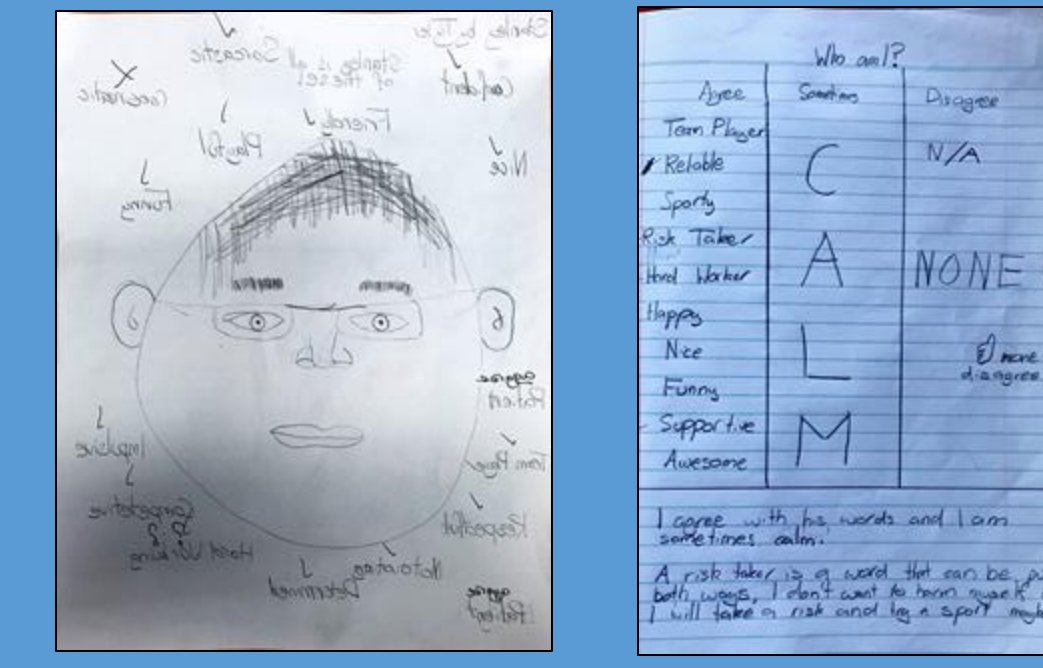 Stanley by Tyler
Sarcastic
Stanley is all
of these!
Confident
Friendly
Playful
Nice
Funny
agree
Patient
Team Player
Impulsive
Competetive
Respectful
Hard Working
Determined
agree
Patient
Who am I?
Agree Sometimes Disagree
Team Player
N/A
Reliable
C
Sporty
Risk Taker
A
NONE
Hard Worker
Happy
Nice
L
more
disagree
Funny
Supportive
M
Awesome
I agree with his words and I am
sometimes calm.
A risk taker is a word that can be
both ways, I don't want to harm myself
I will take a risk and try a sport